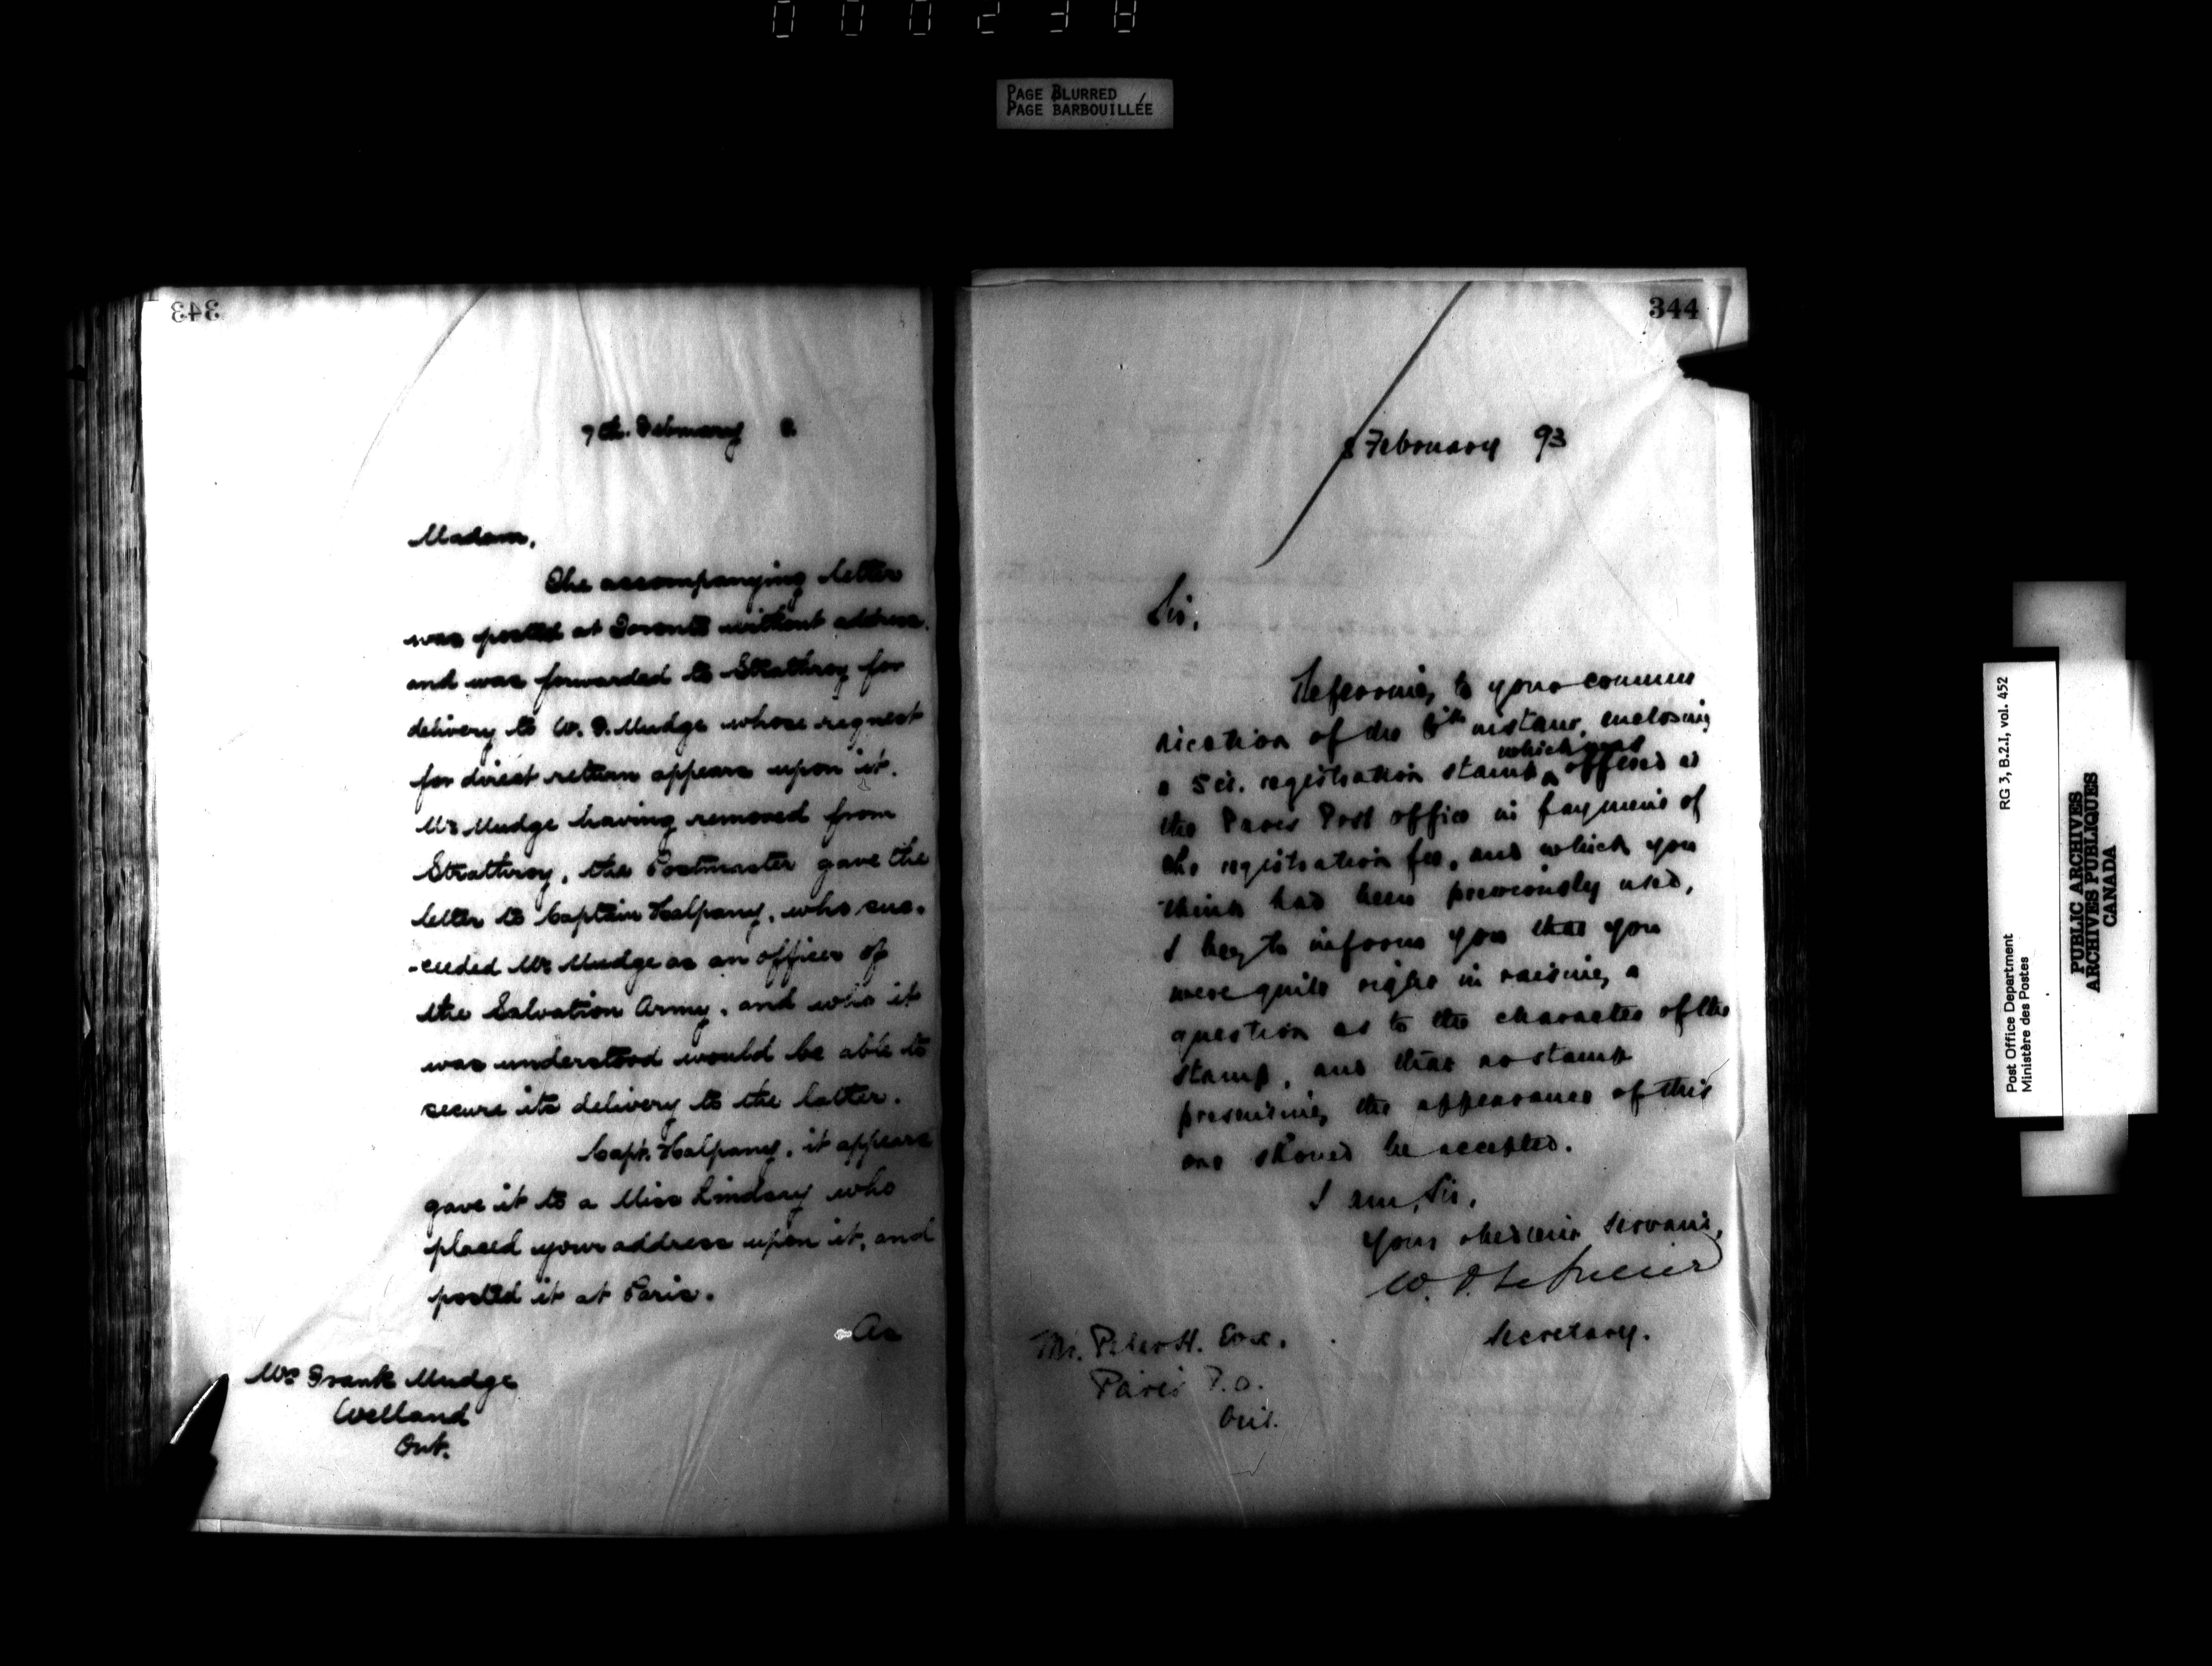 000238
PAGE BLURRED
PAGE BARBOUILLÉE
343
7th. February
Madam,
The accompanying letter
was posted at Toronto without address,
and was forwarded to Strathroy for
delivery to W. F. Mudge whose request
for direct return appears upon it.
Mr Mudge having removed from
Strathroy, the Postmaster gave the
letter to Captain Halpany, who suc-
-ceeded Mr Mudge as an officer of
the Salvation Army, and who it
was understood would be able to
secure its delivery to the latter.
Capt. Halpany, it appears
gave it to a Miss Lindsay who
placed your address upon it, and
posted it at Paris.
As
Mrs Frank Mudge
Welland
Ont.
344
8 February 93
Sir,
Referring to your commu
nication of the 6th instant, enclosing
a 5 ct. registration stamp which was offered at
the Paris Post office in payment of
the registration fee, and which you
think had been previously used,
I beg to inform you that you
were quite right in raising a
question as to the character of the
stamp, and that no stamp
presenting the appearance of this
one should be accepted.
I am, Sir,
Your obedient Servant,
W. D. LeSueur
Secretary.
Mr. Peter H. Cox,
Paris P.O.
Ont.
Post Office Department RG 3, B.2.I, vol. 452
Ministère des Postes
PUBLIC ARCHIVES
ARCHIVES PUBLIQUES
CANADA